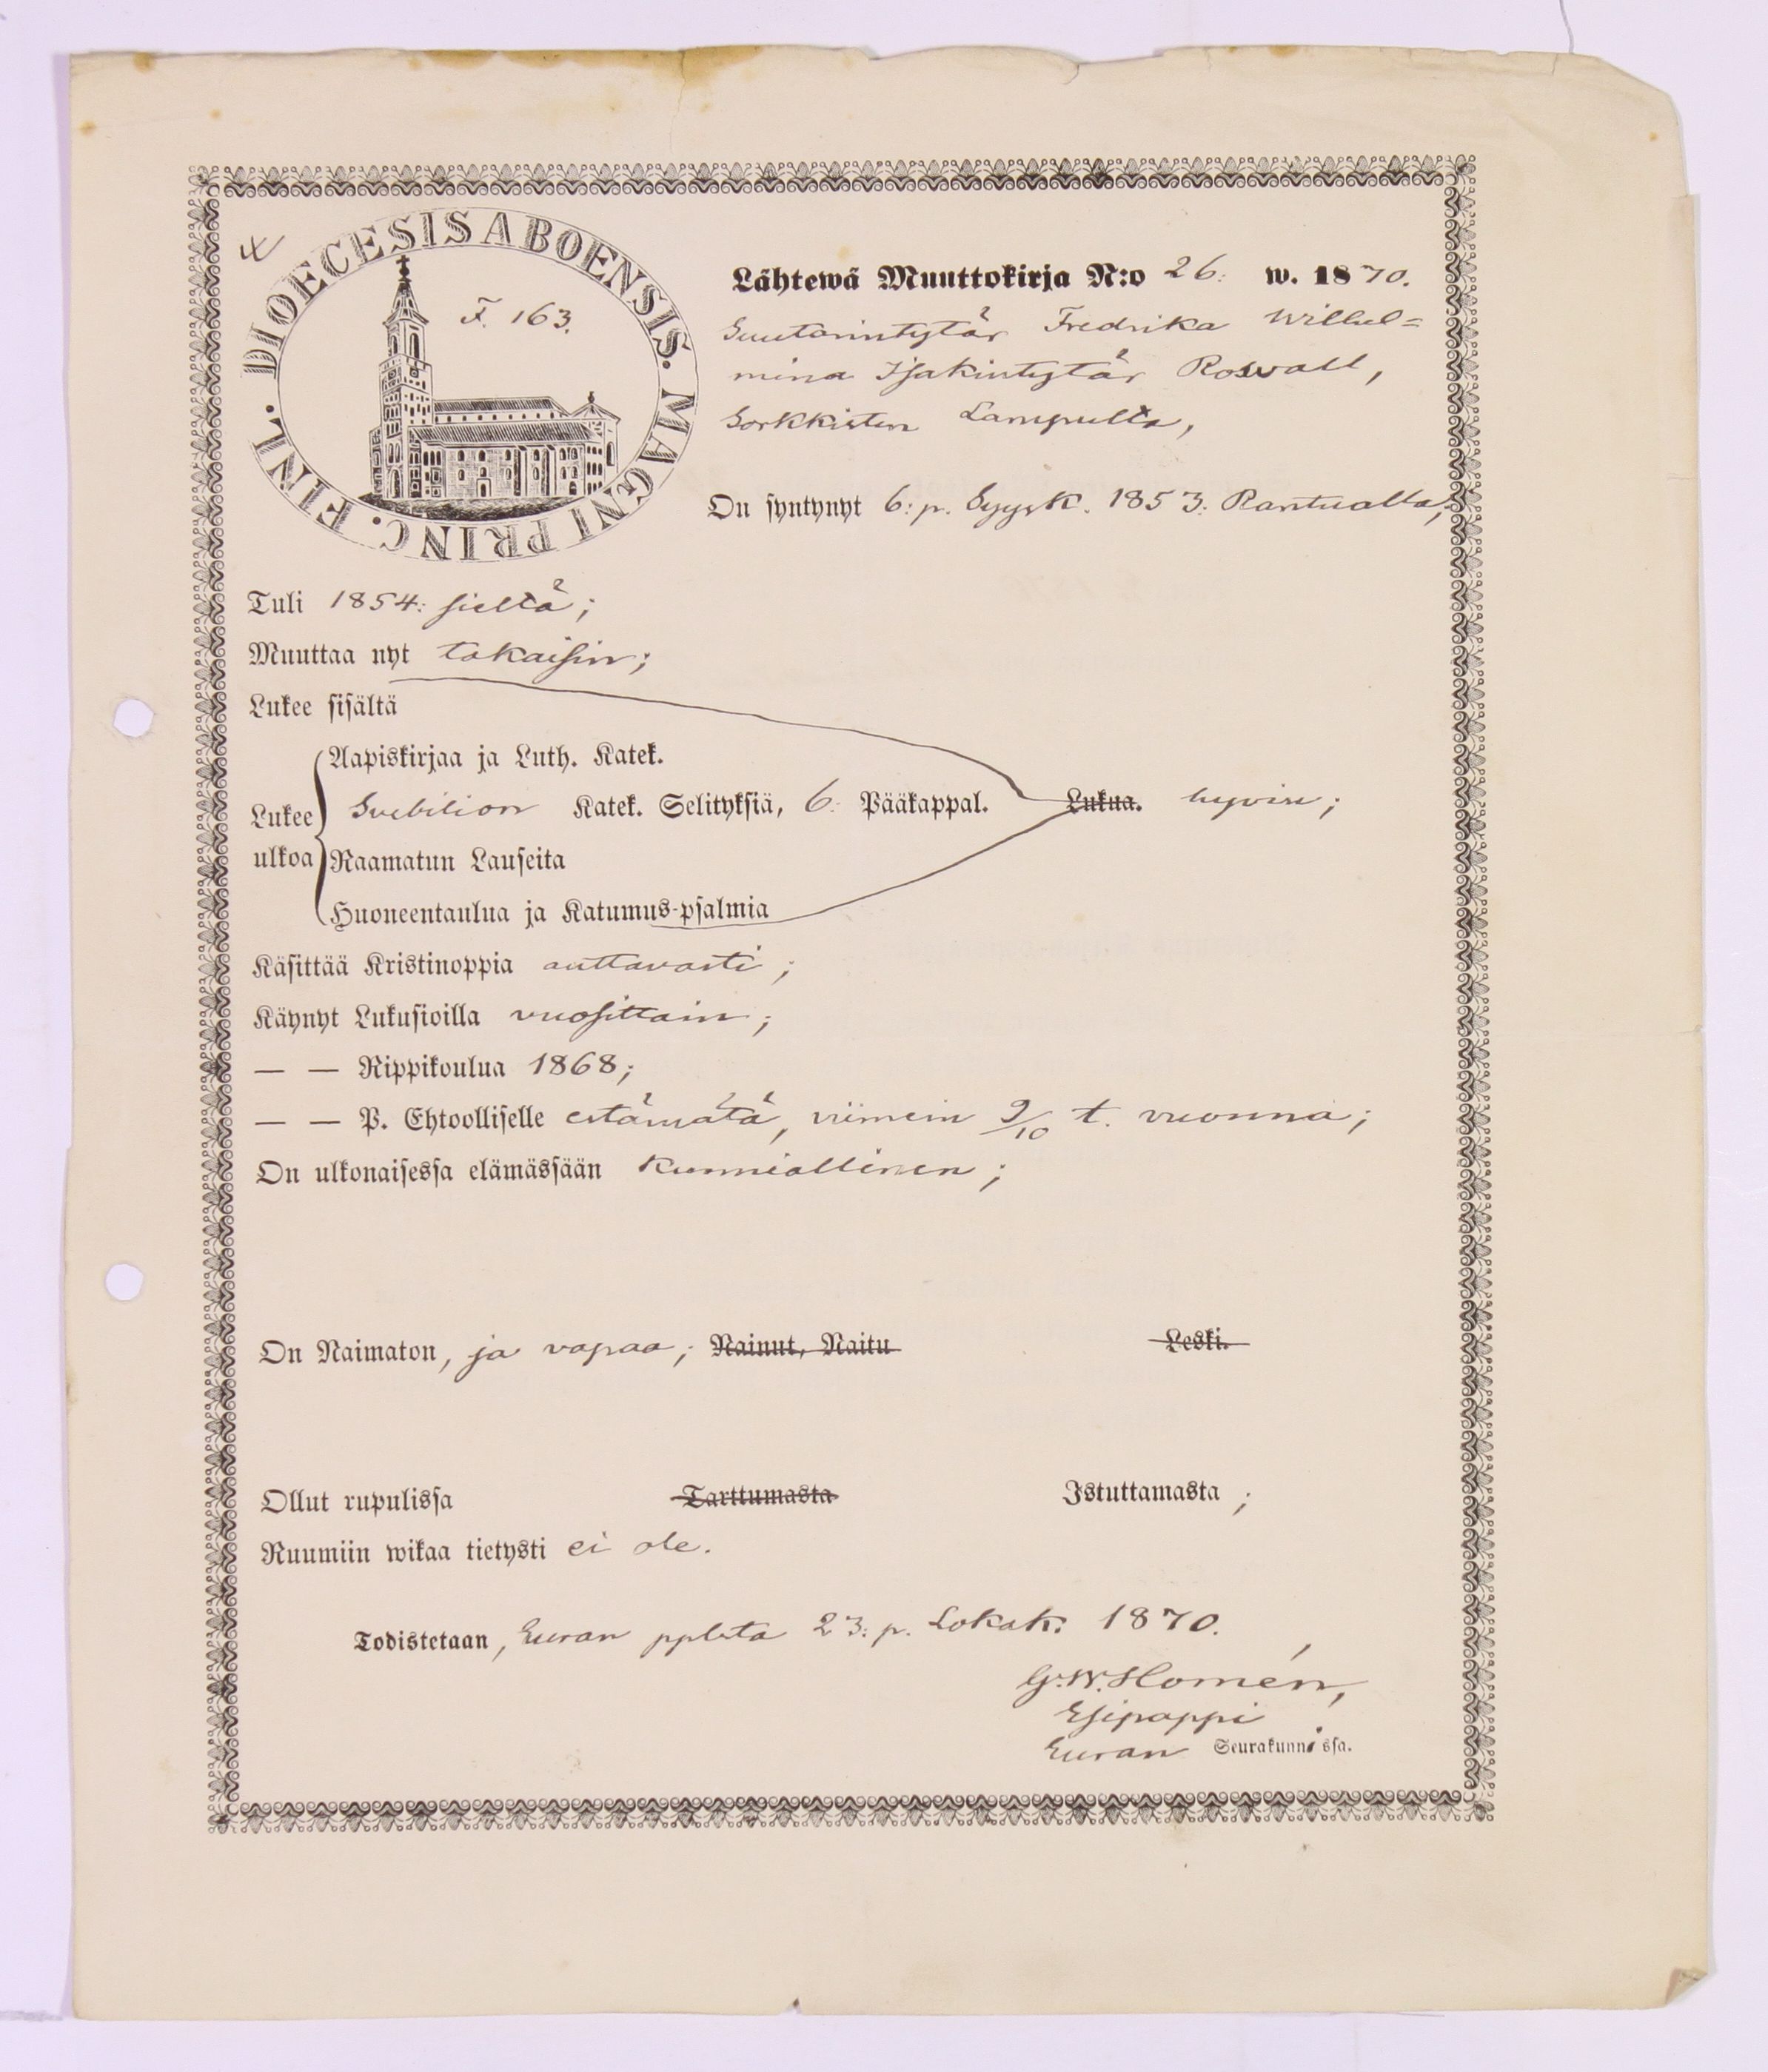 DIOECESIS ABOENSIS. MAGNI PRINC. FINL.
F. 163.
Lähtewä Muuttokirja N:o 26. w. 1870.
Suutarintytär Fredrika Wilhel=
mina Isakintytär Roswall,
Sorkkisten Lampulta,
On syntynyt 6: p. Syysk. 1853. Rantualla;
Tuli 1854: sieltä;
Muuttaa nyt takaisin;
Lukee sisältä
Aapiskirjaa ja Luth. Katek.
Lukee ulkoa Svebilion Katek. Selityksiä, 6: Pääkappal. Lukua. hyvin;
Raamatun Lauseita
Huoneentaulua ja Katumus-psalmia
Käsittää Kristinoppia auttavasti;
Käynyt Lukusioilla vuosittain;
— — Rippikoulua 1868;
— — P. Ehtoolliselle estämätä, viimein 9/10 t. vuonna;
On ulkonaisessa elämässään kunniallinen;
On Naimaton, ja vapaa; Nainut, Naitu Leski.
Ollut rupulissa Tarttumasta Istuttamasta;
Ruumiin wikaa tietysti ei ole.
Todistetaan, Euran pplsta 23: p. Lokak: 1870.
G. W. Homén,
Esipappi
Euran Seurakunnissa.